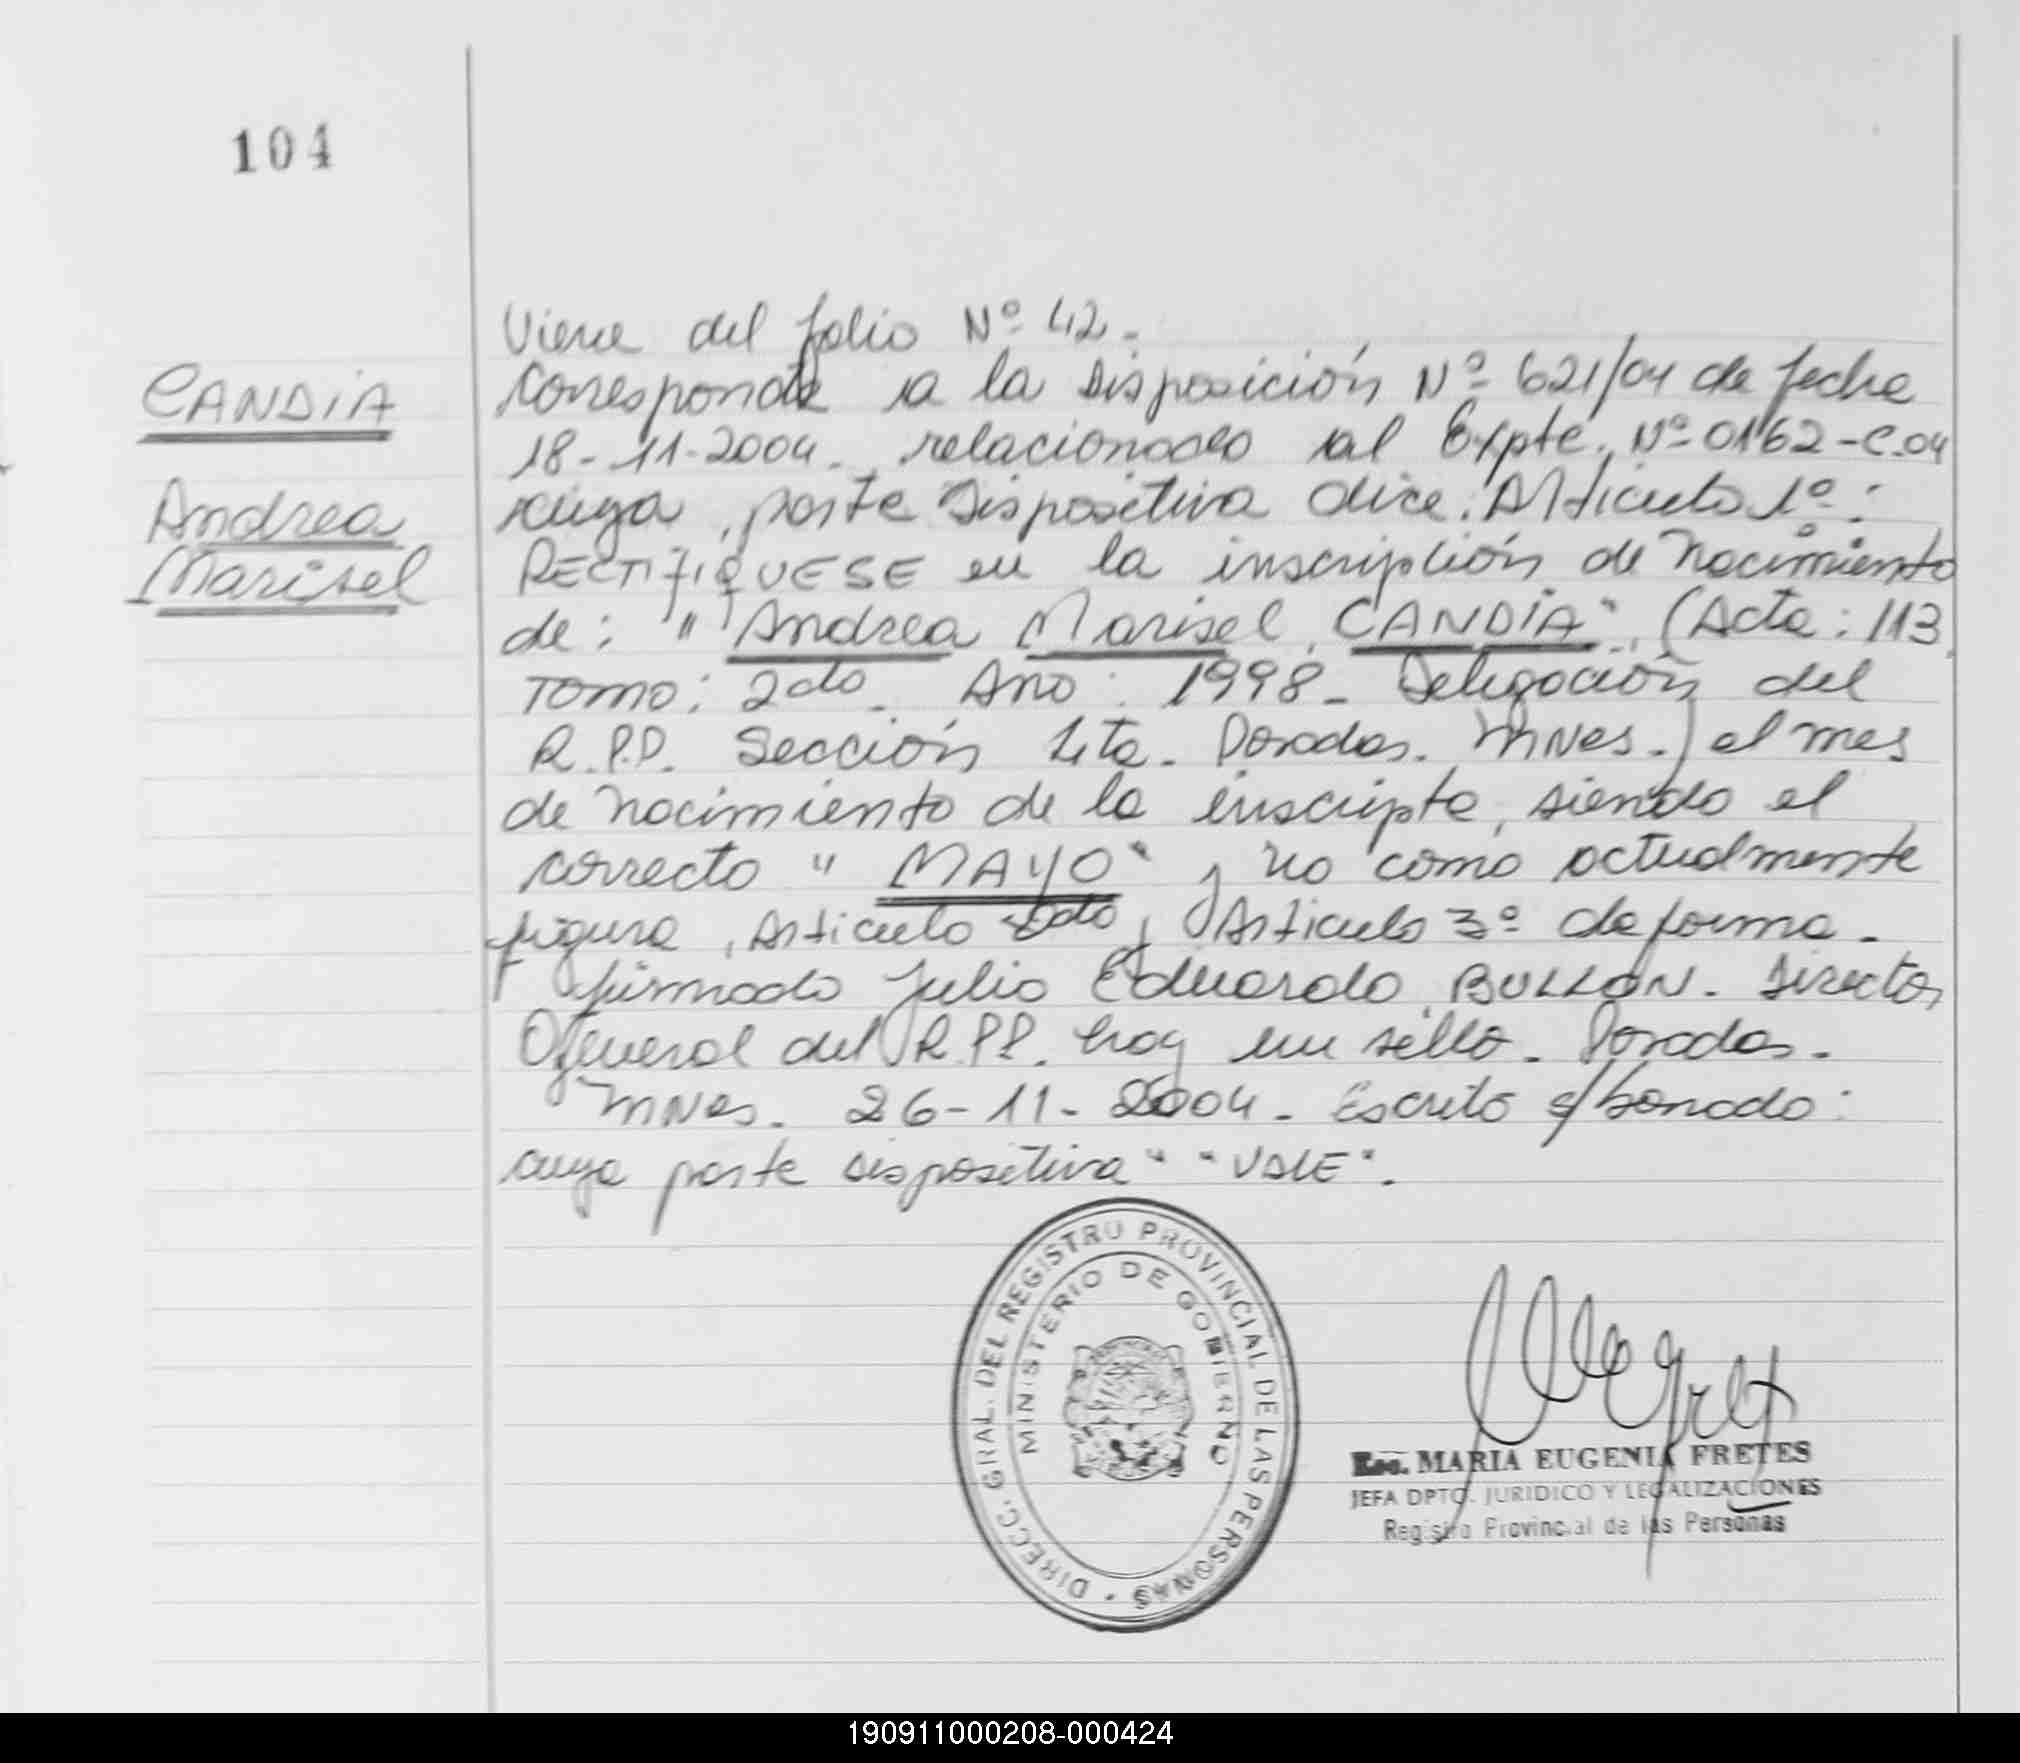 104
Viene del folio Nº 42.-
CANDIA
Andrea
Marisel
Corresponde a la Disposición Nº 621/04 de fecha
18-11-2004. relacionado al Expte. Nº 0162-C.04
cuya parte Dispositiva dice: Artículo 1º:
RECTIFIQUESE en la inscripción de Nacimiento
de: "Andrea Marisel CANDIA", (Acta: 113
Tomo: 2do. Año: 1998- Delegación del
R.P.P. Sección 4ta. Posadas. Mnes.) el mes
de nacimiento de la inscripta, siendo el
correcto "MAYO" y no como actualmente
figura, Artículo 2do, Artículo 3º de forma.-
firmado Julio Eduardo BULLON. Director
General del R.P.P. hay un sello. Posadas.
Mnes. 26-11-2004. Escrito s/borrado:
cuya parte dispositiva" "VALE".
DIRECC. GRAL. DEL REGISTRO PROVINCIAL DE LAS PERSONAS
MINISTERIO DE GOBIERNO
Esc. MARIA EUGENIA FRETES
JEFA DPTO. JURIDICO Y LEGALIZACIONES
Registro Provincial de las Personas
190911000208-000424